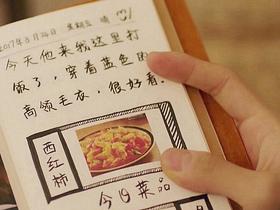 2017年3月24日 星期五 晴
今天他来我这里打
饭了，穿着蓝色的
高领毛衣，很好看。
西红柿
今日菜品